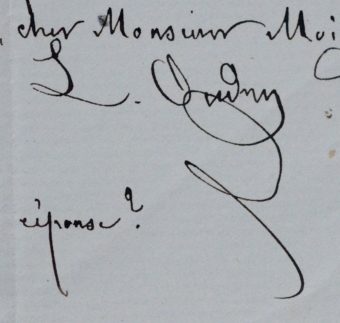 , cher Monsieur Moi
L. Oudry
réponse ?